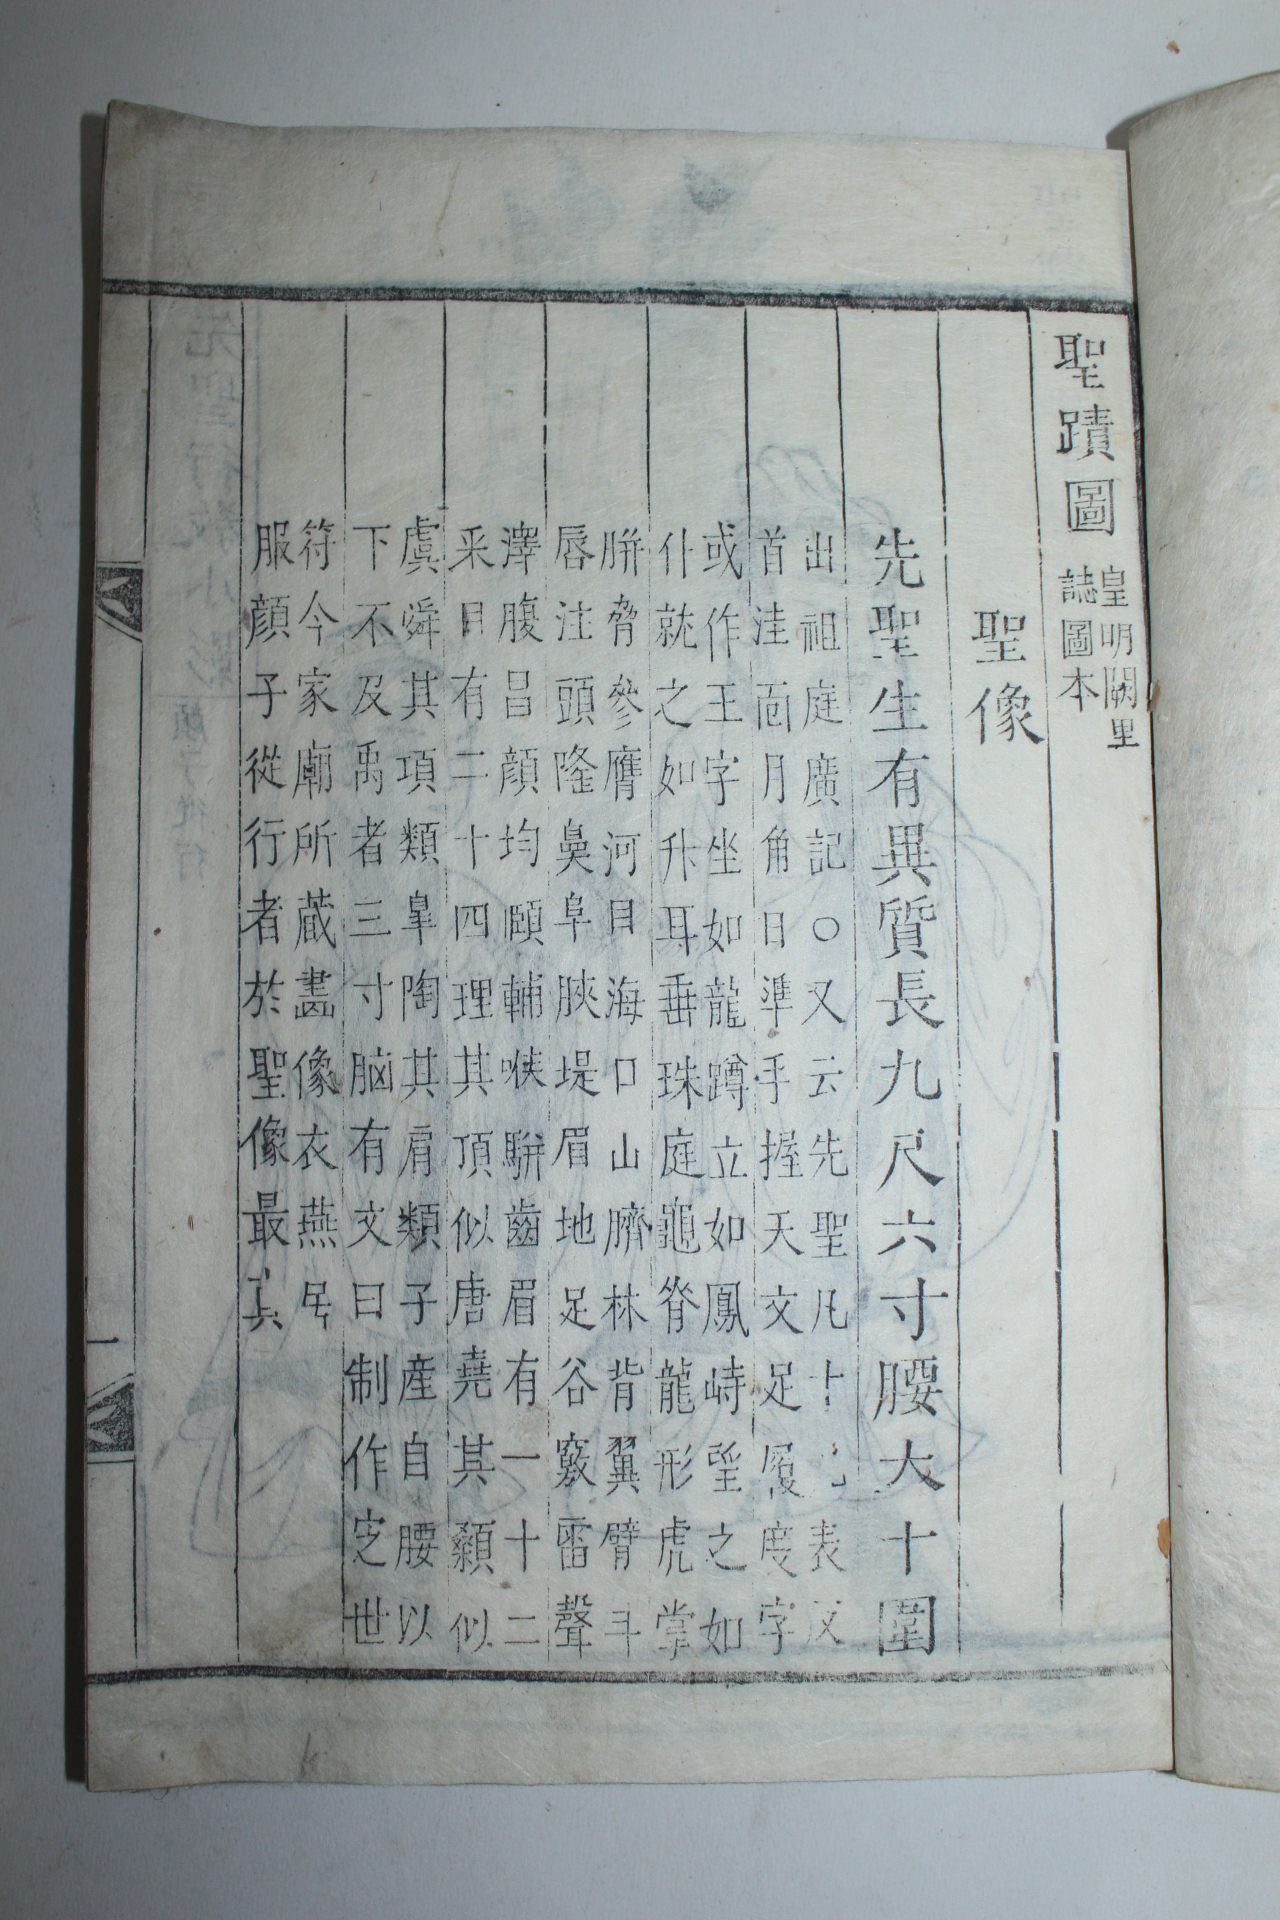 聖蹟圖
皇明闕里
誌圖本
聖像
先聖生有異質長九尺六寸腰大十圍
出祖庭廣記○又云先聖凡十九表又
首洼面月角日準手握天文足履度字
或作王字坐如龍蹲立如鳳峙望之如
仆就之如升耳垂珠庭龜脊龍形虎掌
胼脅參膺河目海口山臍林背翼臂斗
唇注頭隆鼻阜脥堤眉地足谷竅雷聲
澤腹昌顏均頤輔喉騈齒眉有一十二
采目有二十四理其頂似唐堯其顙似
虞舜其項類皐陶其肩類子產自腰以
下不及禹者三寸腦有文曰制作定世
符今家廟所蔵畵像衣燕居
服顏子從行者於聖像最眞
一